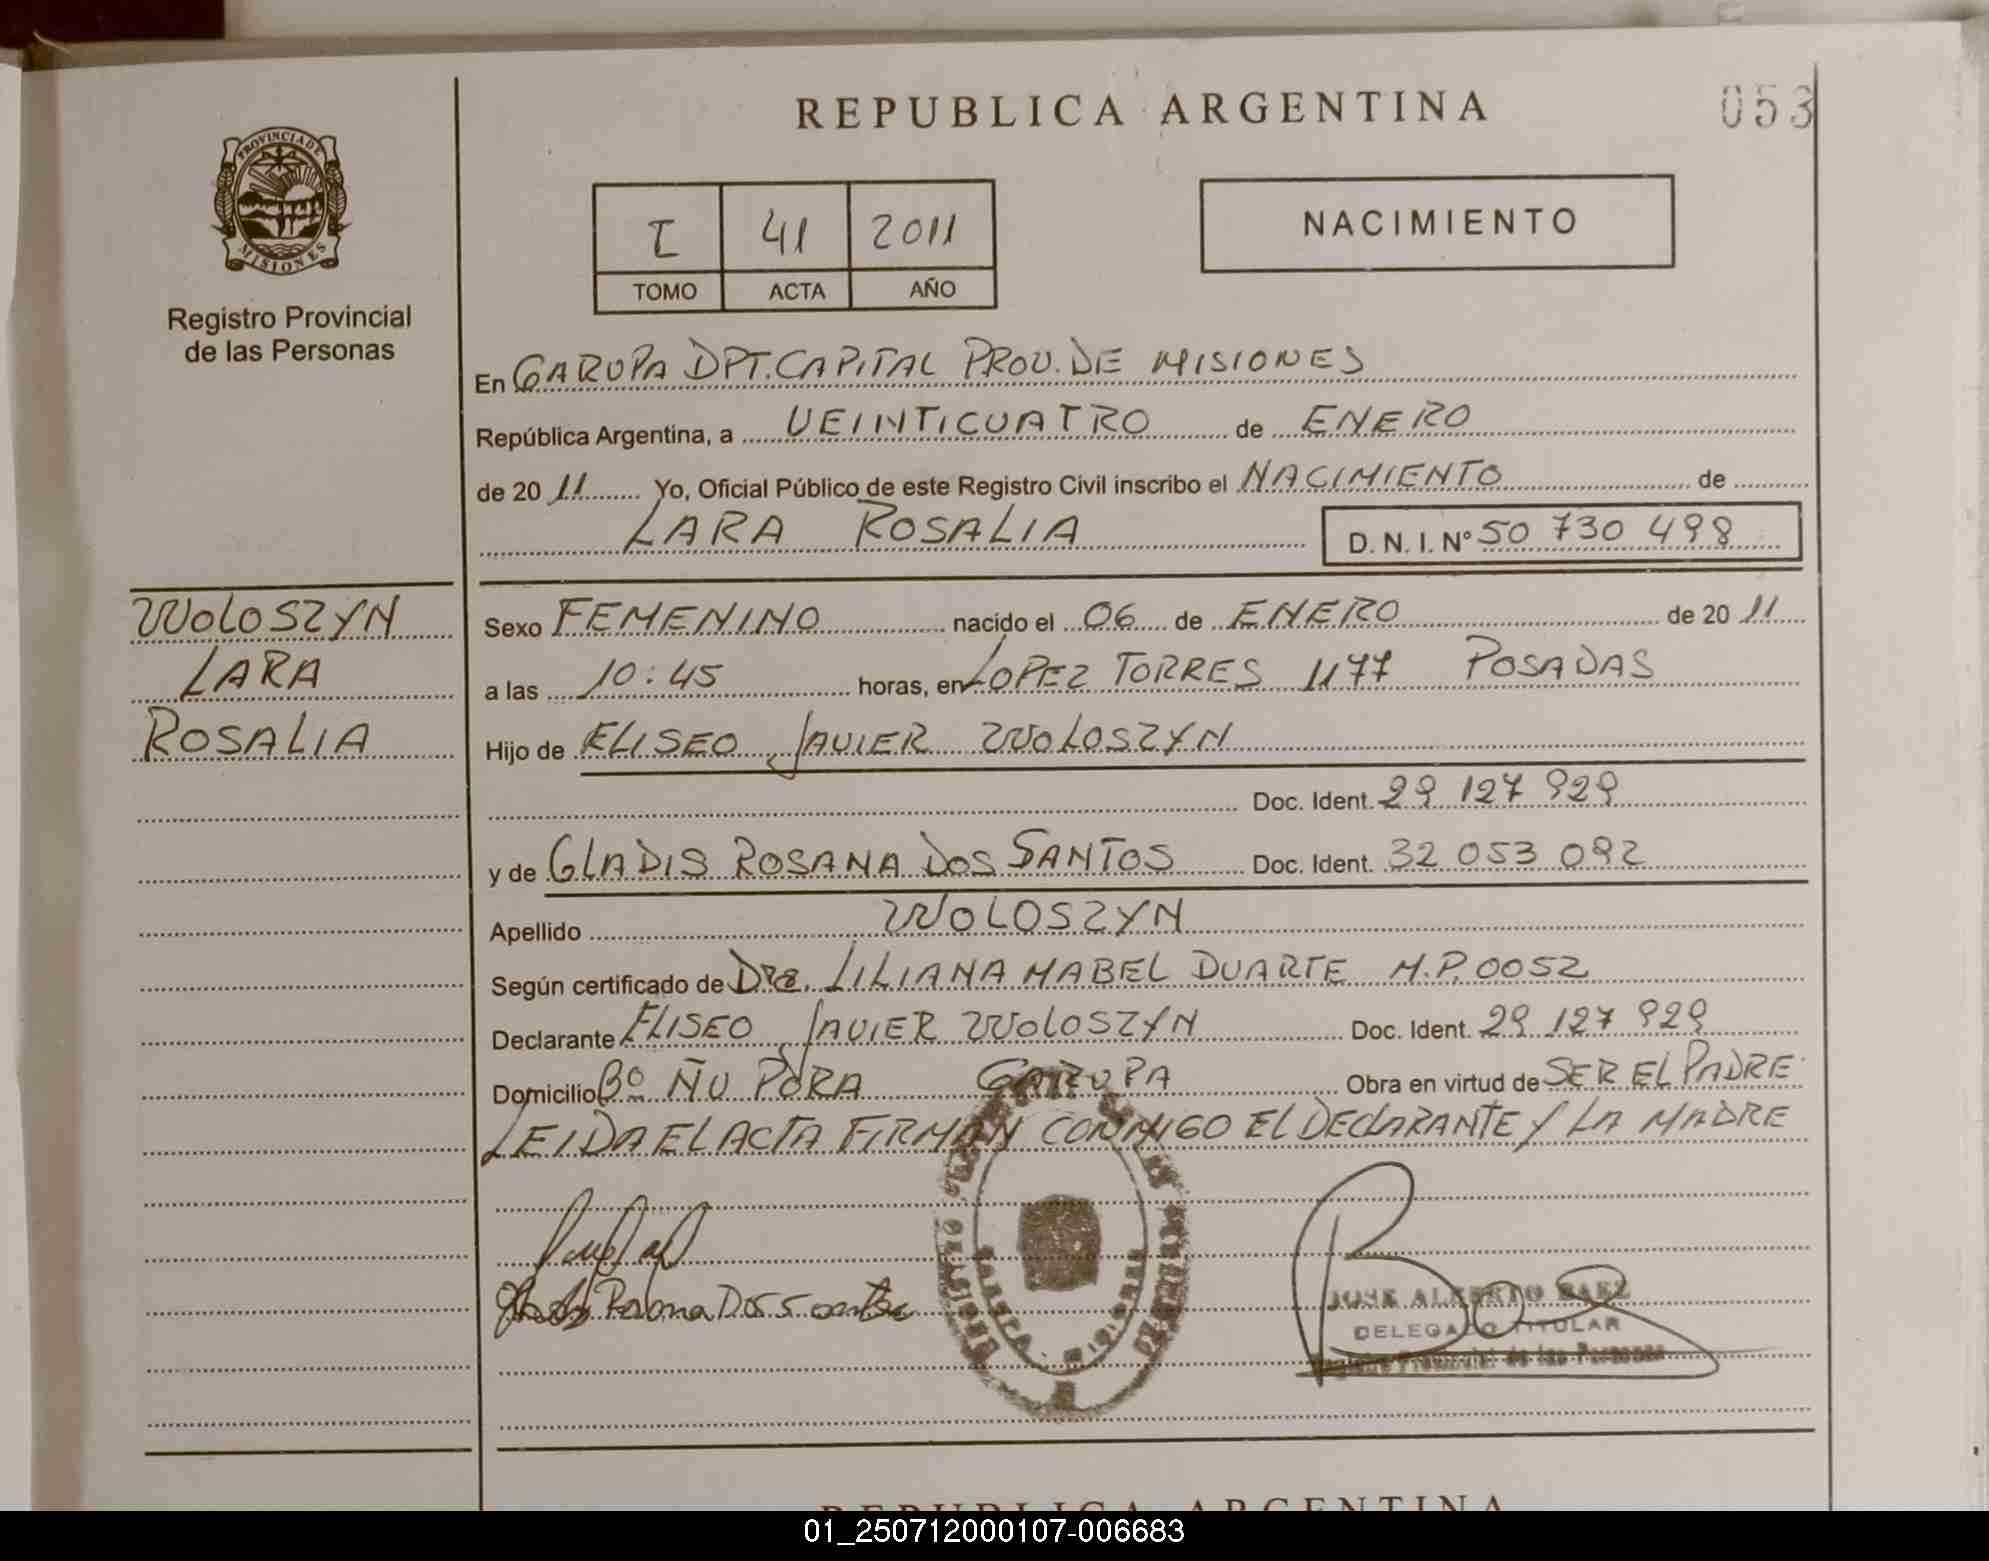 REPUBLICA ARGENTINA
053
PROVINCIA DE
MISIONES
Registro Provincial
de las Personas
I 41 2011
TOMO ACTA AÑO
NACIMIENTO
En GARUPA DPT. CAPITAL PROV. DE MISIONES
República Argentina, a VEINTICUATRO de ENERO
de 20 11 Yo, Oficial Público de este Registro Civil inscribo el NACIMIENTO de
LARA ROSALIA D. N. I. Nº 50 730 498
WOLOSZYN
LARA
ROSALIA
Sexo FEMENINO nacido el 06 de ENERO de 20 11
a las 10:45 horas, en LOPEZ TORRES 1177 POSADAS
Hijo de ELISEO JAVIER WOLOSZYN
Doc. Ident. 29 127 929
y de GLADIS ROSANA DOS SANTOS Doc. Ident. 32 053 092
Apellido WOLOSZYN
Según certificado de Dra. LILIANA MABEL DUARTE M.P. 0052
Declarante ELISEO JAVIER WOLOSZYN Doc. Ident. 29 127 929
Domicilio Bº ÑU PORA GARUPA Obra en virtud de SER EL PADRE
LEIDA EL ACTA FIRMAN CONMIGO EL DECLARANTE Y LA MADRE
JOSE ALBERTO BAEZ
DELEGADO TITULAR
Registro Provincial de las Personas
REPUBLICA ARGENTINA
01_250712000107-006683